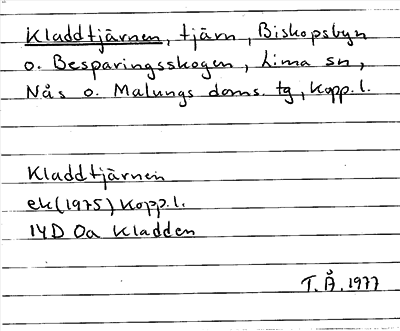 Kladdtjärnen, tjärn, Biskopsbyn
o. Besparingsskogen, Lima sn,
Nås o. Malungs doms. tg, Kopp. l.
Kladdtjärnen
ek (1975) Kopp. l.
14D 0a Kladden
T. Å. 1977